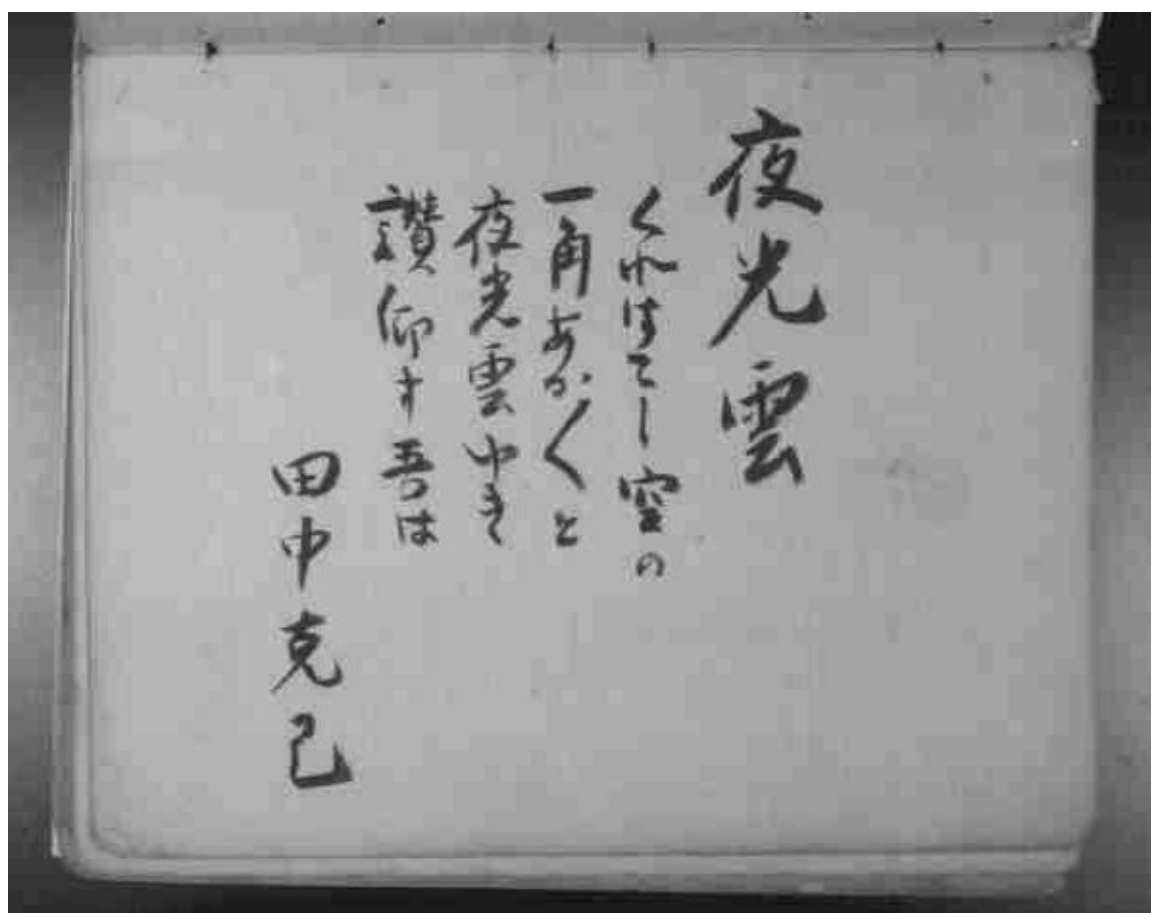 夜光雲
くれはてし空の
一角あか〱と
夜光雲ゆき
讃仰す吾は
田中克己